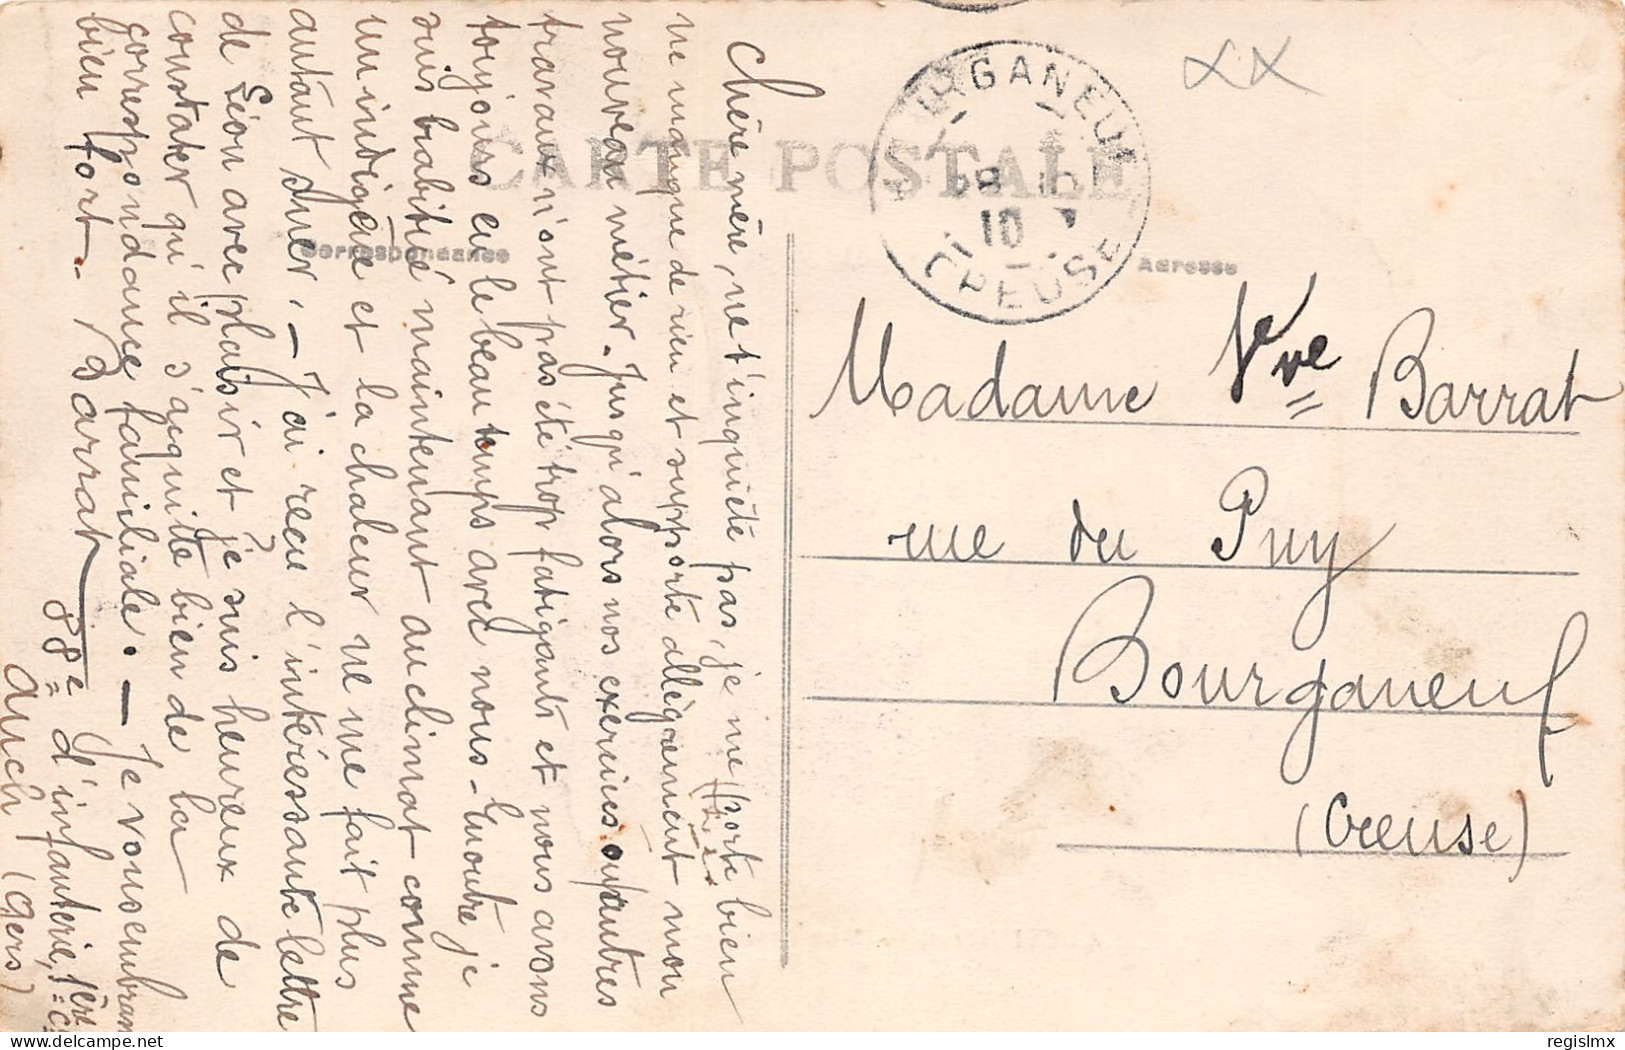 CARTE POSTALE
Correspondance
Adresse
BOURGANEUF
28
10
CREUSE
Chère mère, ne t'inquiète pas, je me porte bien
très
ne manque de rien et supporte allègrement mon
nouveau métier. Jusqu'alors nos exercices ou autres
travaux n'ont pas été trop fatigants et nous avons
toujours eu le beau temps avec nous. En outre je
suis habitué maintenant au climat comme
un indigène et la chaleur ne me fait plus
autant suer. — J'ai reçu l'intéressante lettre
de Léon avec plaisir et je suis heureux de
constater qu'il s'acquitte bien de la
correspondance familiale. — Je vous embrasse
bien fort. Barrat
88e d'infanterie, 1ère
Auch (Gers)
Madame Vve Barrat
rue du Puy
Bourganeuf
(Creuse)
regislmx